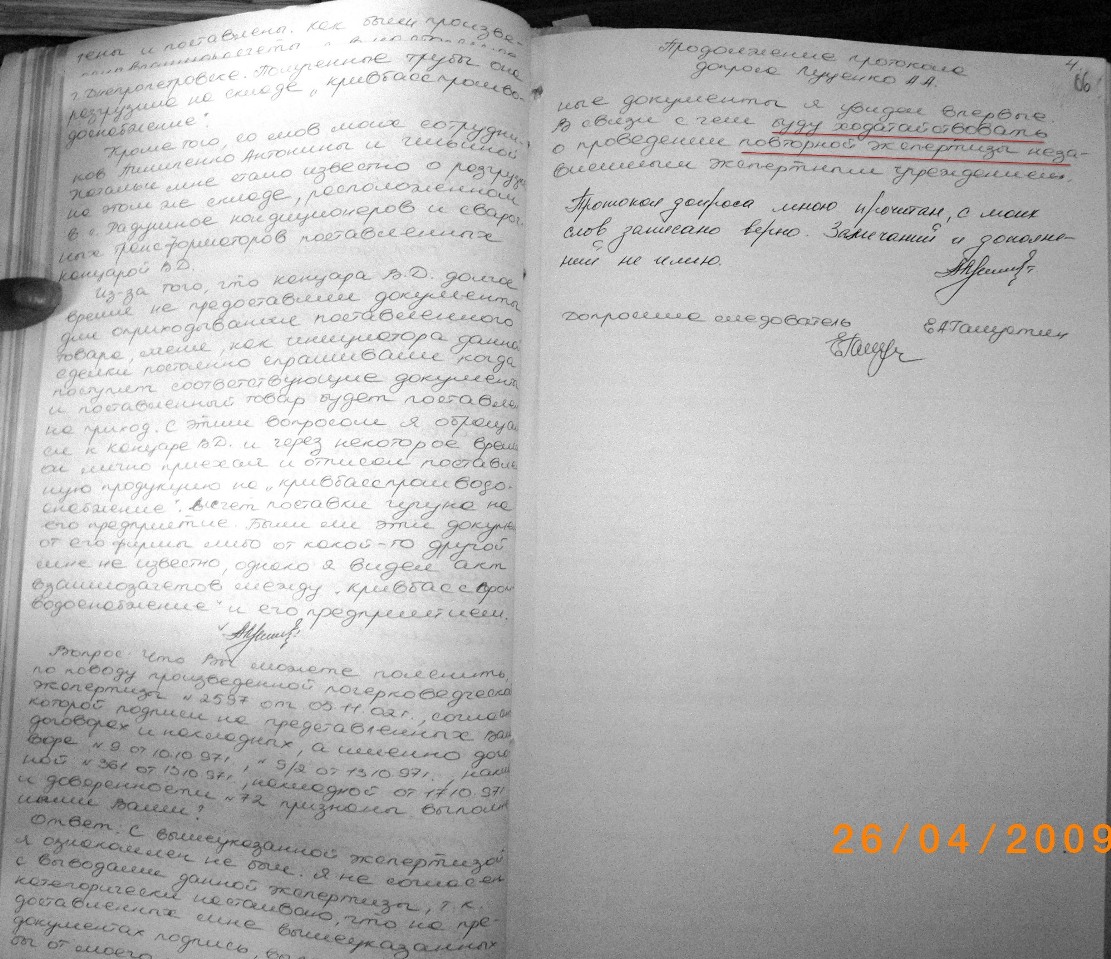 тены и поставлены. Как были произве-
г. Днепропетровске. Полученные трубы они
разгрузили на складе „Кривбасспромво-
доснабжение".
Кроме того, со слов моих сотрудни-
ков Антонины и
Натальи мне стало известно о разгрузке
на этом же складе, расположенном
в с. Радушное кондиционеров и свароч-
ных трансформаторов поставленных
Концарой В.Д.
Из-за того, что Концара В.Д. долгое
время не предоставлял документы
для оприходывания поставленного
товара, меня, как инициатора данной
сделки постоянно спрашивали когда
поступят соответствующие документы
и поставленный товар будет поставлен
на приход. С этим вопросом я обращал
ся к Концаре В.Д. и через некоторое время
он лично приехал и отписал поставлен
ную продукцию на „Кривбасспромводо-
снабжение". В счет поставки чугуна на
его предприятие. Были ли эти докумен
от его фирмы либо от какой-то другой
мне не известно, однако я видел акт
взаимозачетов между „Кривбасспром
водоснабжение" и его предприятием.
Вопрос: Что Вы можете пояснить,
по поводу произведенной почерковедческой
экспертизы №2597 от 05.11.02г., согласно
которой подписи на представленных Вам
договорах и накладных, а именно дого
воре №9 от 10.10.97г., №9/2 от 13.10.97г., накл
ной №361 от 13.10.97г., накладной от 17.10.97г
и доверенности №72 признаны выполнен
ными Вами?
Ответ: С вышеуказанной экспертизой
я ознакомлен не был. Я не согласен
с выводами данной экспертизы, т.к.
категорически настаиваю, что на пре-
доставленных мне вышеуказанных
документах подпись,
бы от моего
Продолжение протокола
допроса Луценко А.А.
4.
06
ные документы я увидел впервые
В связи с чем буду ходатайствовать
о проведении повторной экспертизы неза-
висимым экспертным учреждением.
Протокол допроса мною прочитан, с моих
слов записано верно. Замечаний и дополне-
ний не имею.
Допросила следователь
26/04/2009